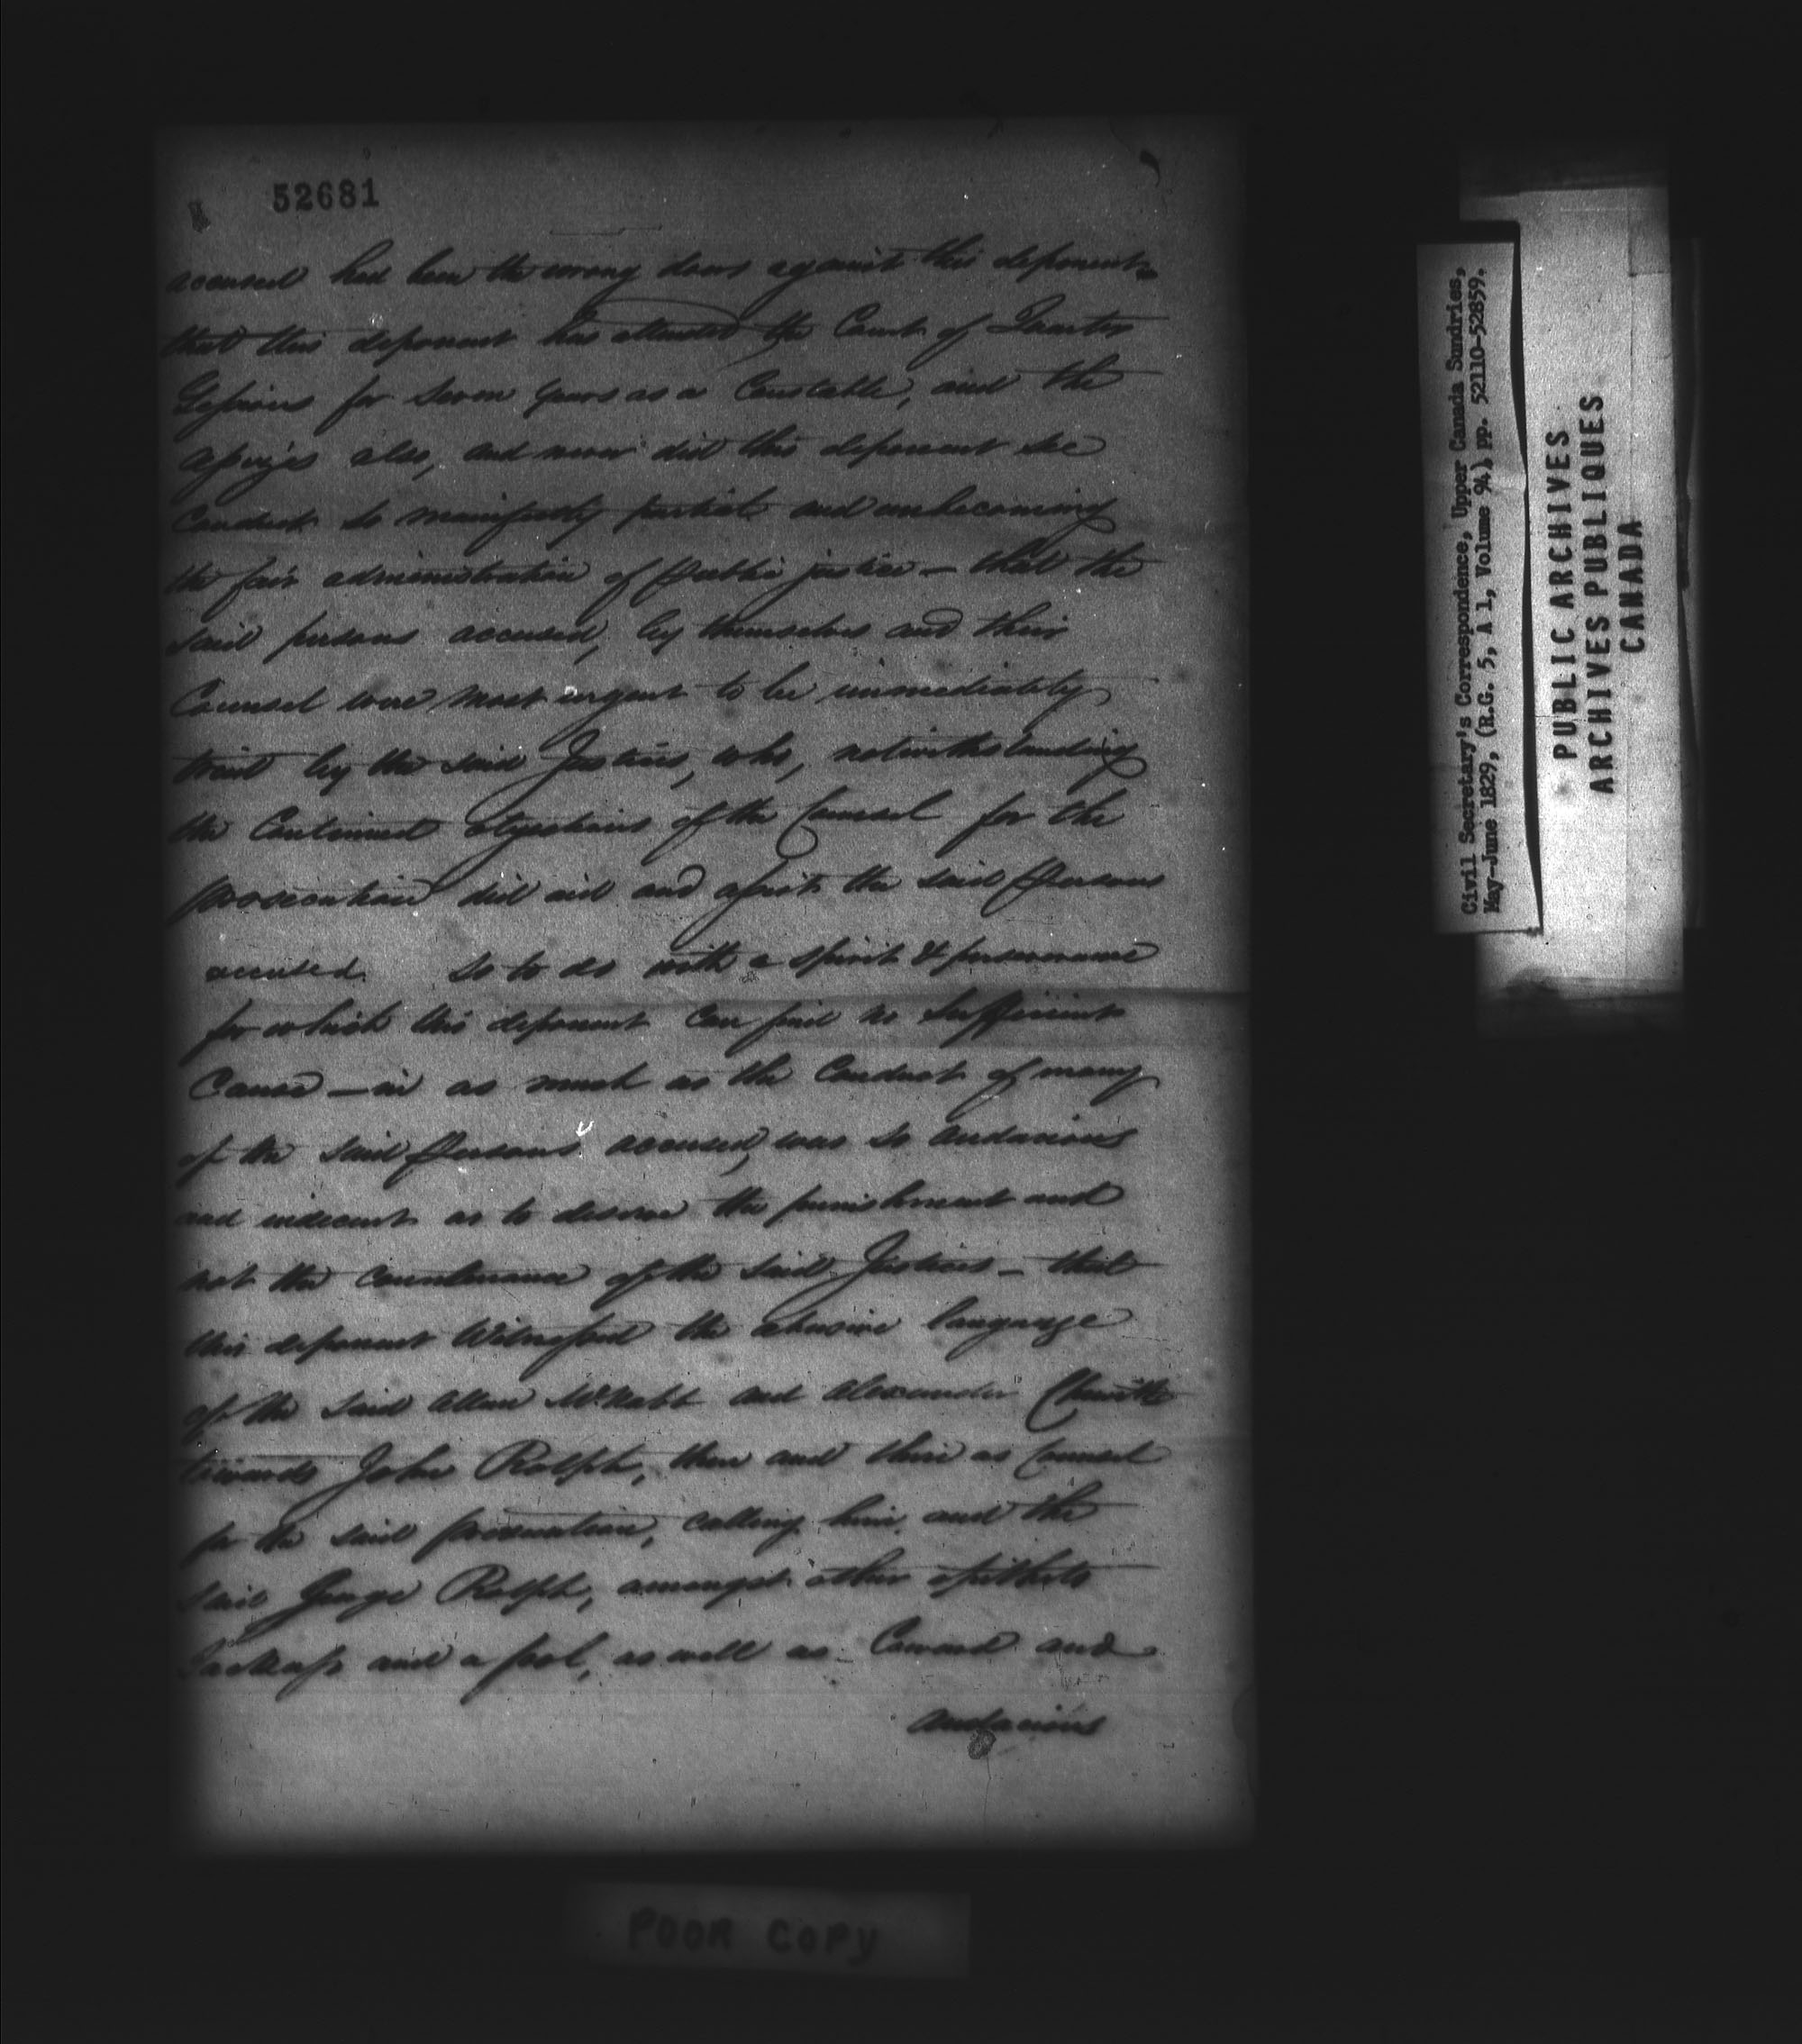 52681
accused had been the wrong doers against this deponent
that this deponent has attended the Court of Quarter
Sessions for seven years as a Constable, and the
assizes also, and never did this deponent see
Conduct so manifestly partial and unbecoming
the fair administration of public justice — that the
said persons accused, by themselves and their
Counsel were most urgent to be immediately
tried by the said Justices, who, notwithstanding
the Continued objections of the Counsel for the
prosecution did aid and assist the said persons
accused. so to do with a spirit & perseverance
for which this deponent can find no sufficient
Cause — in as much as the Conduct of many
of the said persons accused, was so audacious
and indecent as to deserve the punishment and
not the countenance of the said Justices — that
this deponent Witnessed the abusive language
of the said Allan McNabb and Alexander
towards John Rolph, then and there as Counsel
for the said prosecution, calling him and the
said George Rolph, amongst other epithets
Jackass and a fool, as well as Coward and
audacious
POOR COPY
Civil Secretary's Correspondence, Upper Canada Sundries,
May-June 1829, (R.G. 5, A 1, Volume 94), pp. 52110-52859.
PUBLIC ARCHIVES
ARCHIVES PUBLIQUES
CANADA